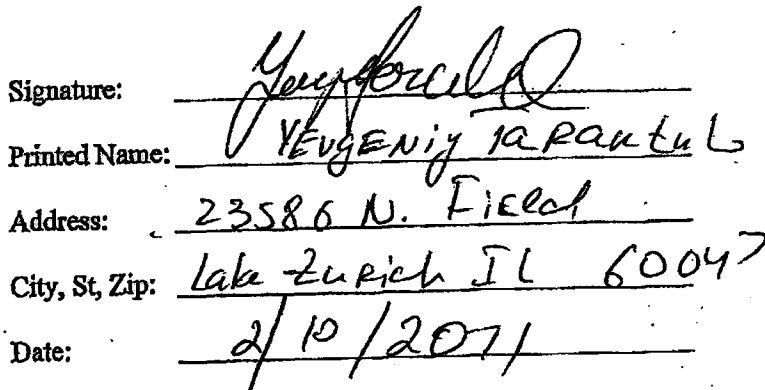 Signature:
Printed Name: YEVGENiy TaRantuL
Address: 23586 N. Field
City, St, Zip: Lake Zurich IL 60047
Date: 2/10/2011